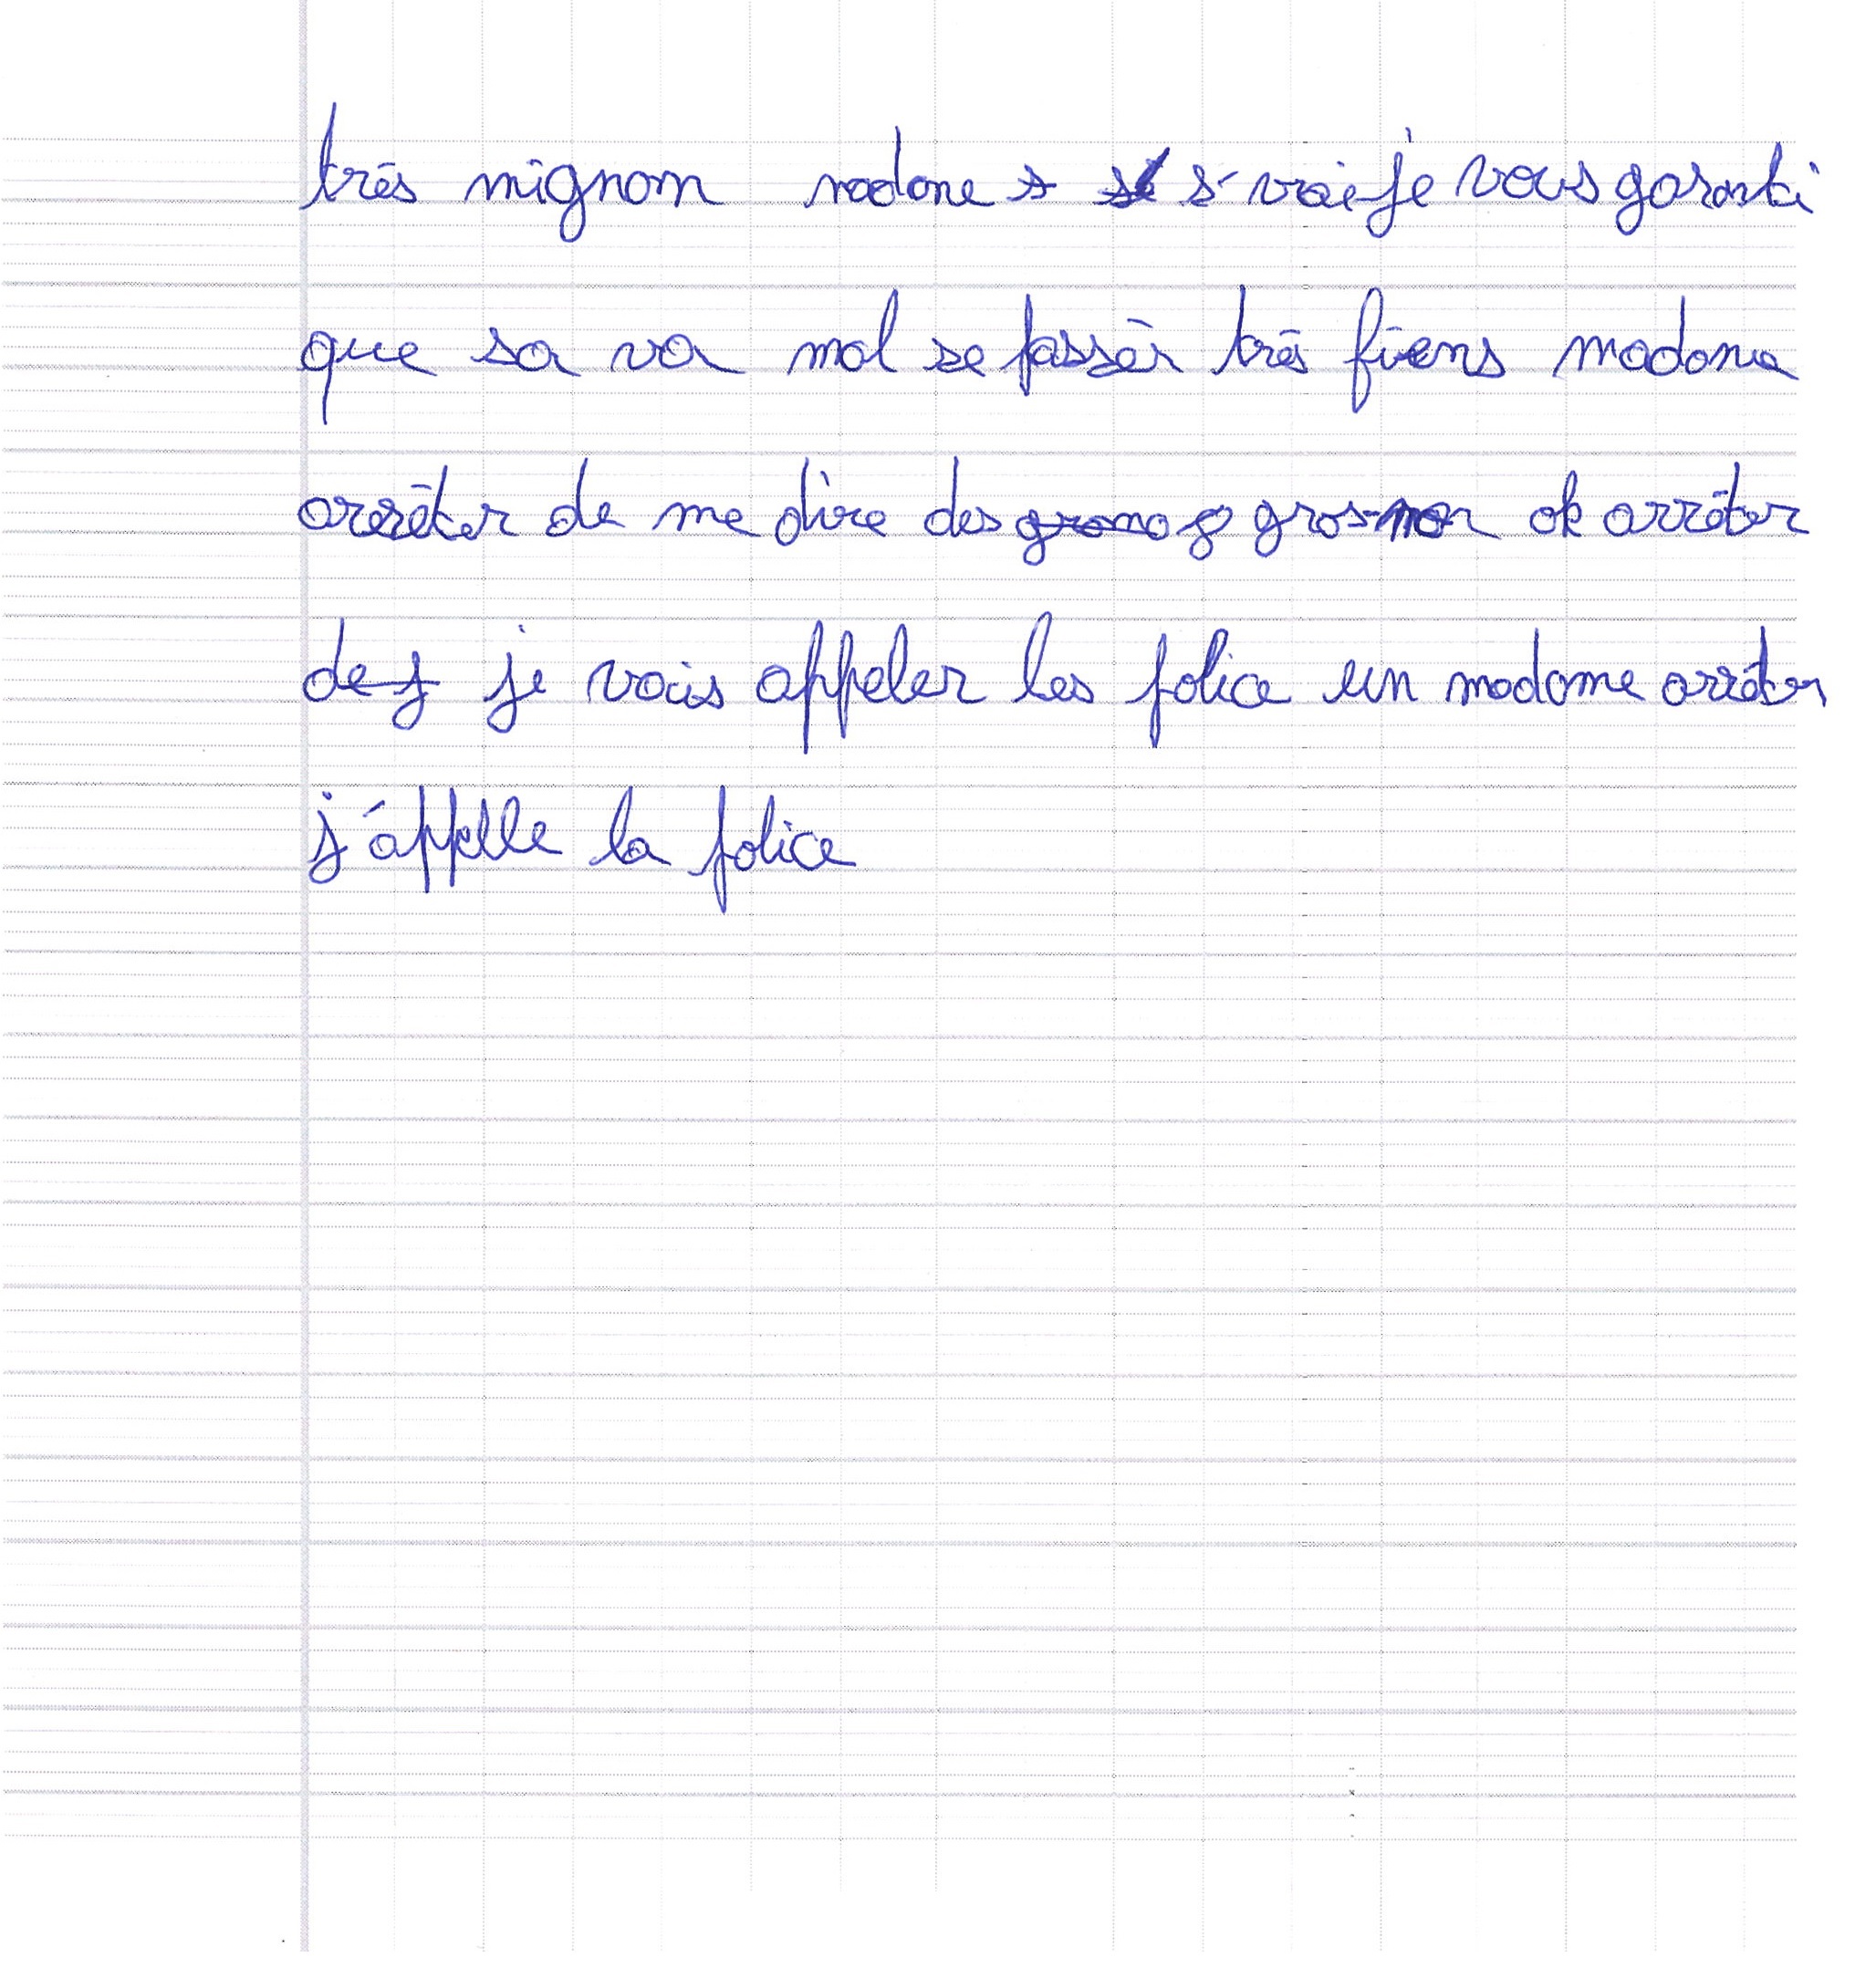 très mignom madone s s-vraie je vous garanti
que sa va mal se passèr très fiens madame
arrêter de me dire des gros-mon ok arrêter
je vais appeler les police un madame arrêter
j'appelle la police